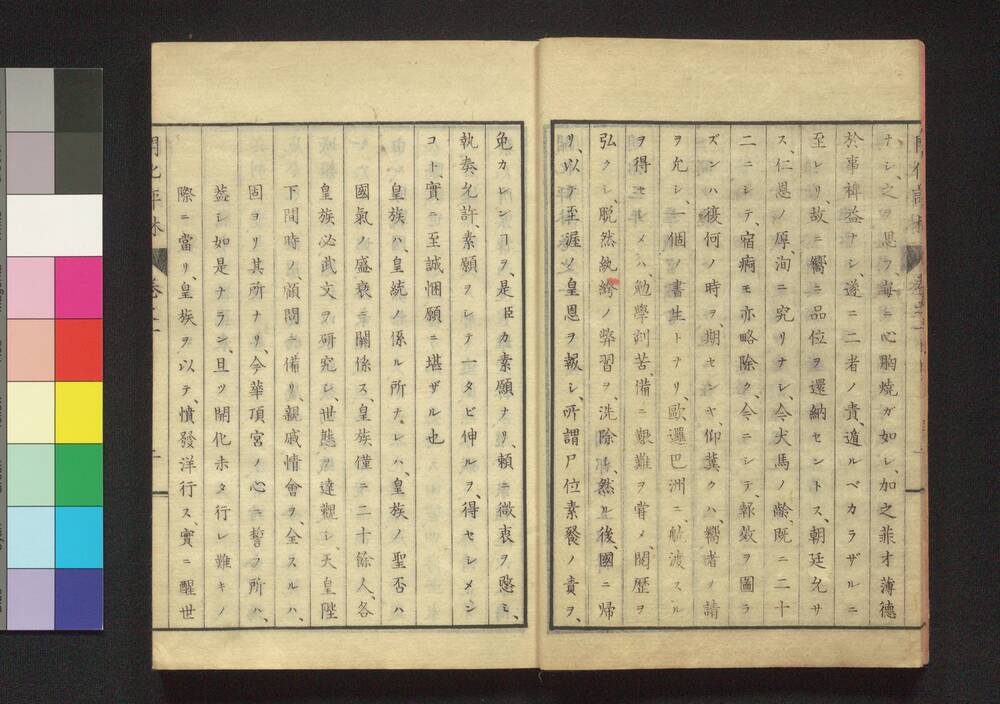 ナシ、之ヲ思フ毎ニ心胸燒ガ如シ、加之菲才薄德
於事裨益ナシ、遂ニ二者ノ責、遁ルベカラザルニ
至レリ、故ニ嚮ニ品位ヲ還納セントス、朝廷允サ
ス、仁恩ノ厚、洵ニ究リナシ、今犬馬ノ齡既ニ二十
二ニシテ、宿痾モ亦略除ク、今ニシテ、報效ヲ圖ラ
ズンハ後何ノ時ヲ期センヤ、仰冀クハ、嚮者ノ請
ヲ允シ、一個ノ書生トナリ、歐邏巴洲ニ航渡スル
ヲ得セシメハ、勉學刻苦、備ニ艱難ヲ嘗メ、閱歷ヲ
弘クシ、脫然紈綺ノ弊習ヲ、洗除シ、然ル後、國ニ歸
リ、以テ至渥ノ皇恩ヲ報シ、所謂尸位素餐ノ責ヲ、
免カレンコヲ、是臣カ素願ナリ、頼ニ微衷ヲ愍ミ、
執奏允許、素願ヲシテ一タビ伸ルヲ、得セシメン
コト、實ニ至誠悃願ニ堪ザル也
皇族ハ、皇統ノ係ル所ナレハ、皇族ノ聖否ハ
國氣ノ盛衰ニ關係ス、皇族僅ニ二十餘人、各
皇族必武文ヲ研究シ、世態ヲ達觀シ、天皇陛
下間時ノ顧問ニ備リ、親戚情會ヲ、全スルハ、
固ヨリ其所ナリ、今華頂宮ノ心ニ誓フ所ハ、
葢シ如是ナラン、且ツ開化ホタ行レ難キノ
際ニ當リ、皇族ヲ以テ、憤發洋行ス、實ニ醒世